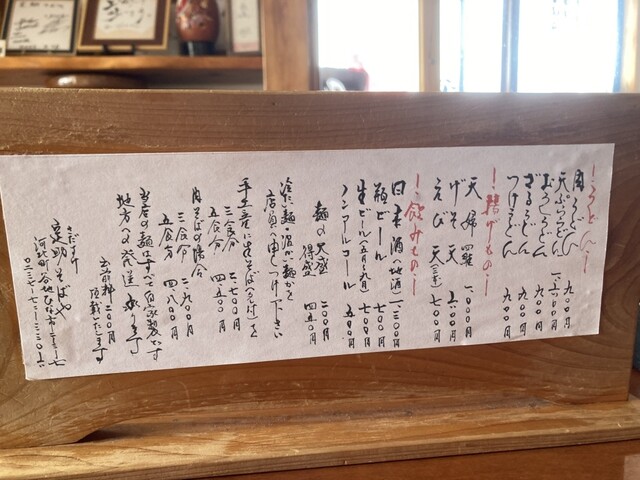 ーうどんー
肉うどん 九〇〇円
天ぷらうどん 一、六〇〇円
おろしうどん 九〇〇円
ざるうどん 九〇〇円
つけうどん 九〇〇円
ー揚げものー
天婦羅 一、〇〇〇円
げそ天
えび天(三本) 七〇〇円
ー飲みものー
日本酒(地酒) 一、三〇〇円
瓶ビール 七〇〇円
生ビール(五月〜九月) 七〇〇円
ノンアルコール 五〇〇円
麺の大盛 二〇〇円
得盛 四五〇円
冷たい麺・温かい麺かを
店員へ申しつけ下さい
手土産に生そば(つゆ付)を
三食分 二、七〇〇円
五食分 四、五〇〇円
肉そばの場合
三食分 二、九〇〇円
五食分 四、八〇〇円
当店の麺はすべて自家製です
地方への発送承ります
出前料二〇〇円
頂戴いたします
さだすけ
定助そばや
河北町谷地ひな市二ー三ー七